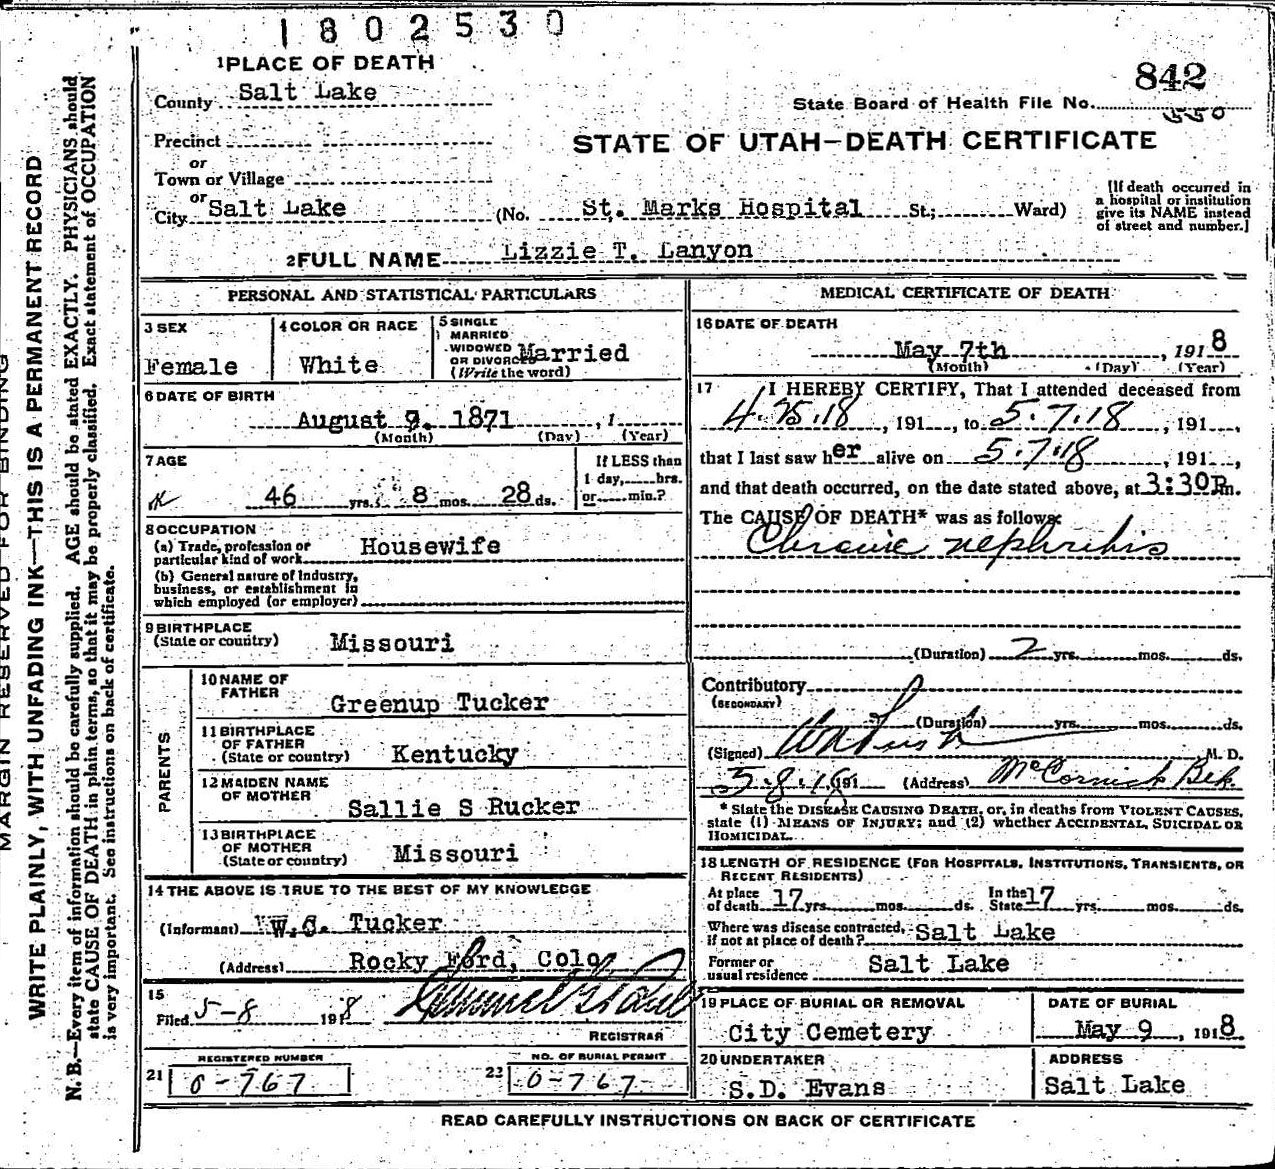 1802530
1 PLACE OF DEATH
County Salt Lake
Precinct
or
Town or Village
or
City Salt Lake (No. St. Marks Hospital St.; Ward)
842
State Board of Health File No.
550
STATE OF UTAH—DEATH CERTIFICATE
[If death occurred in
a hospital or institution
give its NAME instead
of street and number.]
2 FULL NAME Lizzie T. Lanyon
PERSONAL AND STATISTICAL PARTICULARS
3 SEX
Female
4 COLOR OR RACE
White
5 SINGLE
MARRIED
WIDOWED
OR DIVORCED Married
(Write the word)
6 DATE OF BIRTH
August 9. 1871, 1
(Month) (Day) (Year)
7 AGE
46 yrs. 8 mos. 28 ds.
If LESS than
1 day, hrs.
or min.?
8 OCCUPATION
(a) Trade, profession or
particular kind of work Housewife
(b) General nature of Industry,
business, or establishment in
which employed (or employer)
9 BIRTHPLACE
(State or country) Missouri
PARENTS
10 NAME OF
FATHER Greenup Tucker
11 BIRTHPLACE
OF FATHER
(State or country) Kentucky
12 MAIDEN NAME
OF MOTHER Sallie S Rucker
13 BIRTHPLACE
OF MOTHER
(State or country) Missouri
14 THE ABOVE IS TRUE TO THE BEST OF MY KNOWLEDGE
(Informant) W.C. Tucker
(Address) Rocky Ford, Colo
15
Filed 5-8 1918
REGISTRAR
REGISTERED NUMBER
21 0-767
NO. OF BURIAL PERMIT
22 0-767
MEDICAL CERTIFICATE OF DEATH
16 DATE OF DEATH
May 7th, 1918
(Month) (Day) (Year)
17 I HEREBY CERTIFY, That I attended deceased from
4.25.18, 191, to 5.7.18, 191,
that I last saw her alive on 5.7.18, 191,
and that death occurred, on the date stated above, at 3:30P.m.
The CAUSE OF DEATH* was as follows:
Chronic nephritis
(Duration) 2 yrs. mos. ds.
Contributory
(SECONDARY)
(Duration) yrs. mos. ds.
(Signed) M. D.
191 (Address) McCormick
* State the DISEASE CAUSING DEATH, or, in deaths from VIOLENT CAUSES,
state (1) MEANS OF INJURY; and (2) whether ACCIDENTAL, SUICIDAL OR
HOMICIDAL.
18 LENGTH OF RESIDENCE (FOR HOSPITALS, INSTITUTIONS, TRANSIENTS, OR
RECENT RESIDENTS)
At place
of death 17 yrs. mos. ds. In the
State 17 yrs. mos. ds.
Where was disease contracted,
if not at place of death? Salt Lake
Former or
usual residence Salt Lake
19 PLACE OF BURIAL OR REMOVAL
City Cemetery
DATE OF BURIAL
May 9, 1918
20 UNDERTAKER
S.D. Evans
ADDRESS
Salt Lake
READ CAREFULLY INSTRUCTIONS ON BACK OF CERTIFICATE
MARGIN RESERVED FOR BINDING
WRITE PLAINLY, WITH UNFADING INK—THIS IS A PERMANENT RECORD
N. B.—Every item of information should be carefully supplied. AGE should be stated EXACTLY. PHYSICIANS should
state CAUSE OF DEATH in plain terms, so that it may be properly classified. Exact statement of OCCUPATION
is very important. See instructions on back of certificate.